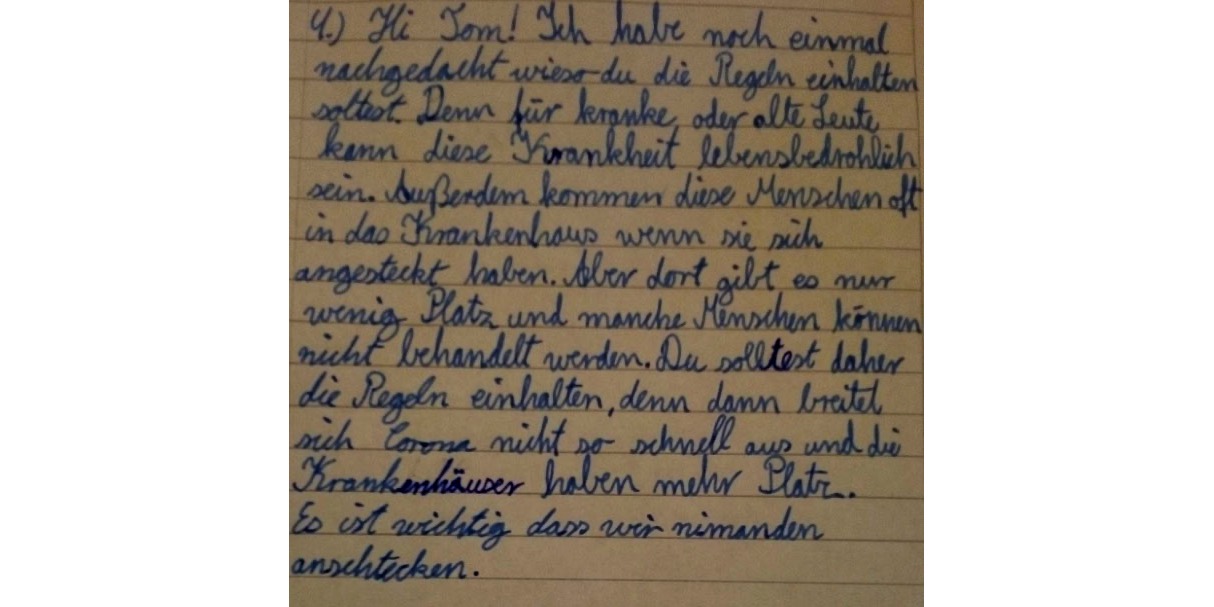 4.) Hi Tom! Ich habe noch einmal
nachgedacht wieso du die Regeln einhalten
soltest. Denn für kranke, oder alte Leute
kann diese Krankheit lebensbedrohlich
sein. Außerdem kommen diese Menschen oft
in das Krankenhaus wenn sie sich
angesteckt haben. Aber dort gibt es nur
wenig Platz und manche Menschen können
nicht behandelt werden. Du solltest daher
die Regeln einhalten, denn dann breitet
sich Corona nicht so schnell aus und die
Krankenhäuser haben mehr Platz.
Es ist wichtig dass wir nimanden
anschtecken.